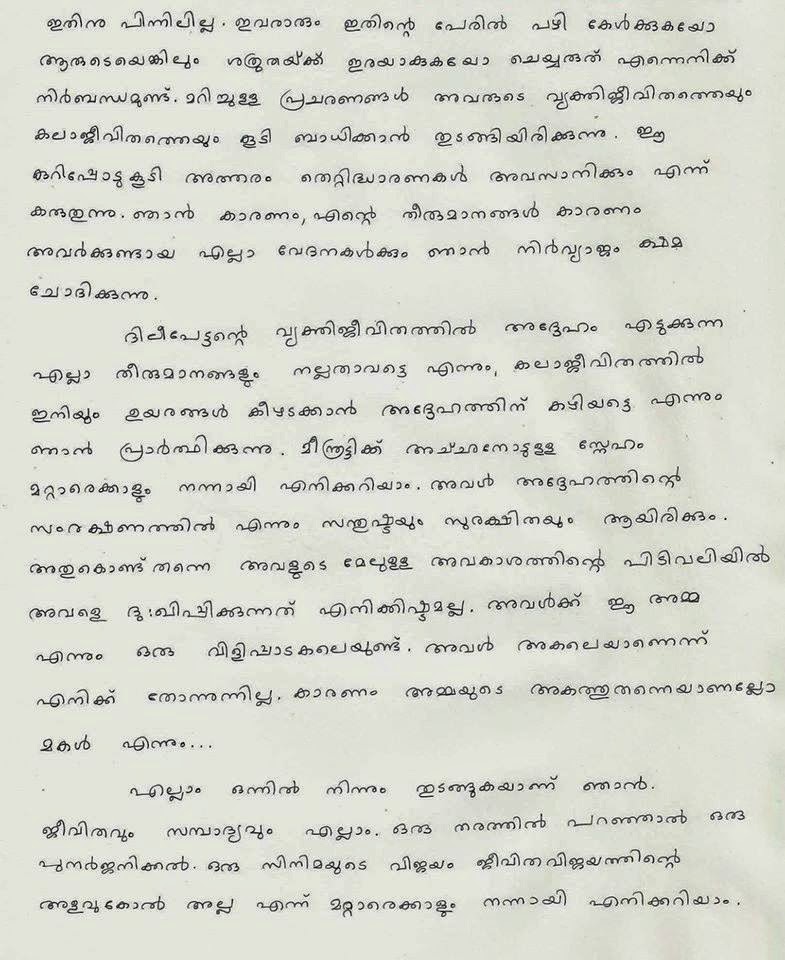 ഇതിനു പിന്നിലില്ല. ഇവരാരും ഇതിന്റെ പേരിൽ പഴി കേൾക്കുകയോ
ആരുടെയെങ്കിലും ശത്രുതയ്ക്ക് ഇരയാകുകയോ ചെയ്യരുത് എന്നെനിക്ക്
നിർബന്ധമുണ്ട്. മറിച്ചുള്ള പ്രചരണങ്ങൾ അവരുടെ വ്യക്തിജീവിതത്തെയും
കലാജീവിതത്തെയും കൂടി ബാധിക്കാൻ തുടങ്ങിയിരിക്കുന്നു. ഈ
കുറിപ്പോടു കൂടി അത്തരം തെറ്റിദ്ധാരണകൾ അവസാനിക്കും എന്ന്
കരുതുന്നു. ഞാൻ കാരണം, എന്റെ തീരുമാനങ്ങൾ കാരണം
അവർക്കുണ്ടായ എല്ലാ വേദനകൾക്കും ഞാൻ നിർവ്യാജം ക്ഷമ
ചോദിക്കുന്നു.
ദിലീപേട്ടന്റെ വ്യക്തിജീവിതത്തിൽ അദ്ദേഹം എടുക്കുന്ന
എല്ലാ തീരുമാനങ്ങളും നല്ലതാവട്ടെ എന്നും, കലാജീവിതത്തിൽ
ഇനിയും ഉയരങ്ങൾ കീഴടക്കാൻ അദ്ദേഹത്തിന് കഴിയട്ടെ എന്നും
ഞാൻ പ്രാർത്ഥിക്കുന്നു. മീനൂട്ടിക്ക് അച്ഛനോടുള്ള സ്നേഹം
മറ്റാരെക്കാളും നന്നായി എനിക്കറിയാം. അവൾ അദ്ദേഹത്തിന്റെ
സംരക്ഷണത്തിൽ എന്നും സന്തുഷ്ടയും സുരക്ഷിതയും ആയിരിക്കും.
അതുകൊണ്ട് തന്നെ അവളുടെ മേലുള്ള അവകാശത്തിന്റെ പിടിവലിയിൽ
അവളെ ദു:ഖിപ്പിക്കുന്നത് എനിക്കിഷ്ടമല്ല. അവൾക്ക് ഈ അമ്മ
എന്നും ഒരു വിളിപ്പാടകലെയുണ്ട്. അവൾ അകലെയാണെന്ന്
എനിക്ക് തോന്നുന്നില്ല. കാരണം അമ്മയുടെ അകത്തുതന്നെയാണല്ലോ
മകൾ എന്നും...
എല്ലാം ഒന്നിൽ നിന്നും തുടങ്ങുകയാണ് ഞാൻ.
ജീവിതവും സമ്പാദ്യവും എല്ലാം. ഒരു തരത്തിൽ പറഞ്ഞാൽ ഒരു
പുനർജനിക്കൽ. ഒരു സിനിമയുടെ വിജയം ജീവിതവിജയത്തിന്റെ
അളവുകോൽ അല്ല എന്ന് മറ്റാരെക്കാളും നന്നായി എനിക്കറിയാം.